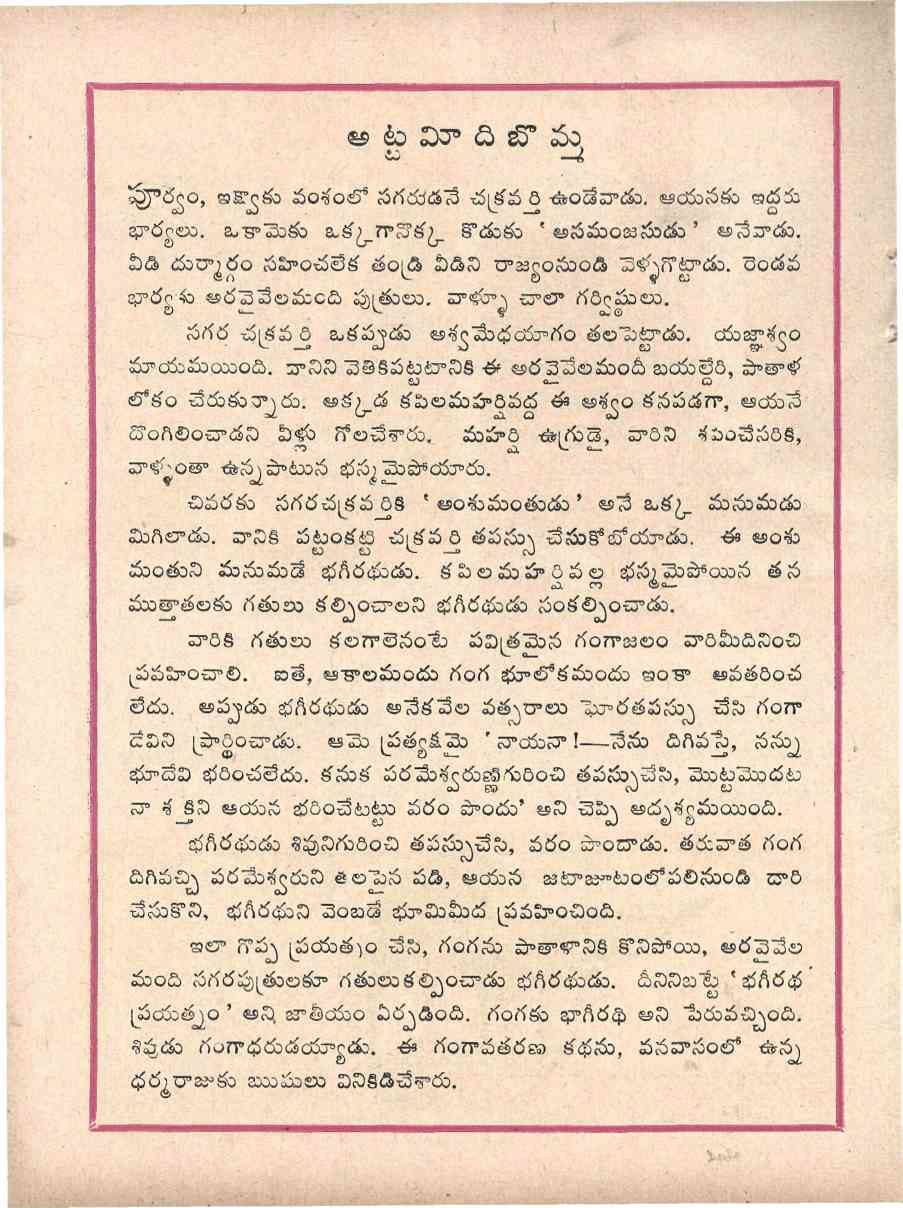 అట్టమీదిబొమ్మ
పూర్వం, ఇక్ష్వాకు వంశంలో సగరుడనే చక్రవర్తి ఉండేవాడు. ఆయనకు ఇద్దరు
భార్యలు. ఒకామెకు ఒక్కగానొక్క కొడుకు ‘అసమంజసుడు’ అనేవాడు.
వీడి దుర్మార్గం సహించలేక తండ్రి వీడిని రాజ్యంనుండి వెళ్ళగొట్టాడు. రెండవ
భార్యకు అరవైవేలమంది పుత్రులు. వాళ్ళూ చాలా గర్విష్ఠులు.
సగర చక్రవర్తి ఒకప్పుడు అశ్వమేధయాగం తలపెట్టాడు. యజ్ఞాశ్వం
మాయమయింది. దానిని వెతికిపట్టటానికి ఈ అరవైవేలమందీ బయల్దేరి, పాతాళ
లోకం చేరుకున్నారు. అక్కడ కపిలమహర్షివద్ద ఈ అశ్వం కనపడగా, ఆయనే
దొంగిలించాడని వీళ్లు గోలచేశారు. మహర్షి ఉగ్రుడై, వారిని శపించేసరికి,
వాళ్ళంతా ఉన్నపాటున భస్మమైపోయారు.
చివరకు సగరచక్రవర్తికి ‘అంశుమంతుడు’ అనే ఒక్క మనుమడు
మిగిలాడు. వానికి పట్టంకట్టి చక్రవర్తి తపస్సు చేసుకోబోయాడు. ఈ అంశు
మంతుని మనుమడే భగీరథుడు. కపిలమహర్షివల్ల భస్మమైపోయిన తన
ముత్తాతలకు గతులు కల్పించాలని భగీరథుడు సంకల్పించాడు.
వారికి గతులు కలగాలెనంటే పవిత్రమైన గంగాజలం వారిమీదినించి
ప్రవహించాలి. ఐతే, ఆకాలమందు గంగ భూలోకమందు ఇంకా అవతరించ
లేదు. అప్పుడు భగీరథుడు అనేకవేల వత్సరాలు ఘోరతపస్సు చేసి గంగా
దేవిని ప్రార్థించాడు. ఆమె ప్రత్యక్షమై ‘నాయనా!—నేను దిగివస్తే, నన్ను
భూదేవి భరించలేదు. కనుక పరమేశ్వరుణ్ణిగురించి తపస్సుచేసి, మొట్టమొదట
నా శక్తిని ఆయన భరించేటట్టు వరం పొందు’ అని చెప్పి అదృశ్యమయింది.
భగీరథుడు శివునిగురించి తపస్సుచేసి, వరం పొందాడు. తరువాత గంగ
దిగివచ్చి పరమేశ్వరుని తలపైన పడి, ఆయన జటాజూటంలోపలినుండి దారి
చేసుకొని, భగీరథుని వెంబడే భూమిమీద ప్రవహించింది.
ఇలా గొప్ప ప్రయత్నం చేసి, గంగను పాతాళానికి కొనిపోయి, అరవైవేల
మంది సగరపుత్రులకూ గతులుకల్పించాడు భగీరథుడు. దీనినిబట్టే ‘భగీరథ
ప్రయత్నం’ అని జాతీయం ఏర్పడింది. గంగకు భాగీరథి అని పేరువచ్చింది.
శివుడు గంగాధరుడయ్యాడు. ఈ గంగావతరణ కథను, వనవాసంలో ఉన్న
ధర్మరాజుకు ఋషులు వినికిడిచేశారు.